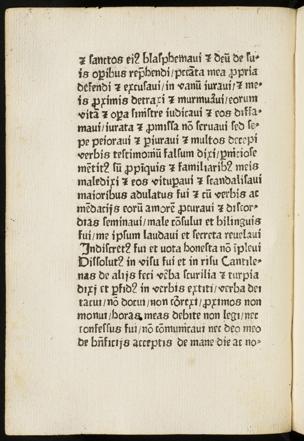 ⁊ sanctos eiꝰ blasphemaui ⁊ deū de su-
is oꝑibus rep̄hendi/pctāta mea ꝓpria
defendi ⁊ excusaui/in vanū iuraui/⁊ me-
is ꝓximis detraxi ⁊ murmuraui/eorum
vitā ⁊ oꝑa sinistre iudicaui ⁊ eos diffa-
maui/iurata ⁊ ꝓmissa nō seruaui sed se-
pe peioraui ⁊ ꝑiuraui ⁊ multos decepi
verbis testimoniū falsum dixi/ꝑniciose
mētitꝰ sū ꝓpiquis ⁊ familiaribꝰ meis
maledixi ⁊ eos vitupaui ⁊ scandalisaui
maioribus adulatus fui ⁊ cū verbis ac
mēdatijs eorū amorē ꝓcuraui ⁊ discor-
dias seminaui/male cōsului et bilinguis
fui/me ipsum laudaui et secreta reuelaui
Indiscretꝰ fui et vota honesta nō ipleui
Dissolutꝰ in visu fui et in risu Cantile-
nas de alijs feci vēba scurilia ⁊ turpia
dixi et ꝑfidꝰ in verbis extiti/verba dei
tacui/nō docui/non correxi/ꝓximos non
monui/horas meas debite non legi/nec
confessus fui/nō cōmunicaui nec deo meo
de bn̄ficijs acceptis de mane die ac no-